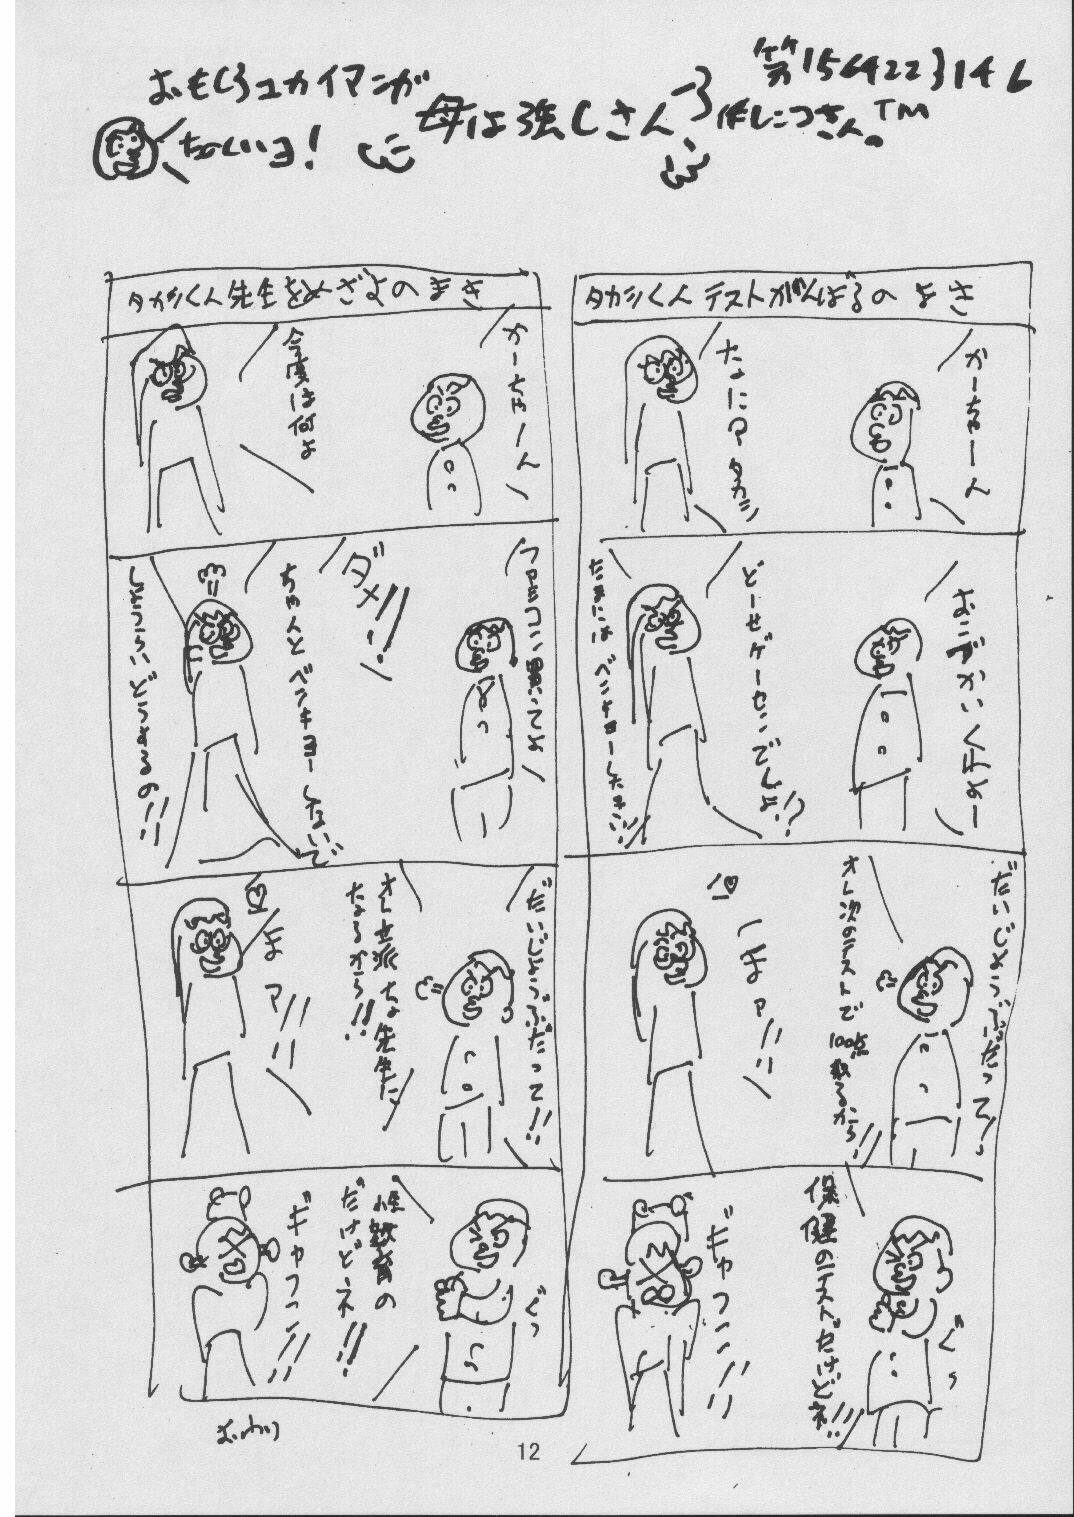 おもしろユカイマンガ
母は強しさん
第1564223146
作しこつさん。TM
ちゅーいヨ!
タカシくん テストがんばるの まき
かーちゃーん
なに?タカシ
おこづかいくれよー
どーせゲーセンでしょ!?
たまにはベンキョーしたまえ!!
だいじょうぶだって!
オレ次のテストで100点取るから!!
まァ!!
保健のテストだけどネ!!
ぐっ
ギャフン!!
タカシくん先生をめざすの まき
かーちゃーん
今度は何よ
こづかい ください
ダメ!!
ちゃんとベンキョーしないで
しょうらいどうするの!!
だいじょうぶだって!!
オレ立派な先生に
なるから!!
まァ!!
性教育の
だけどネ!!
ぐっ
ギャフン!!
おわり
12